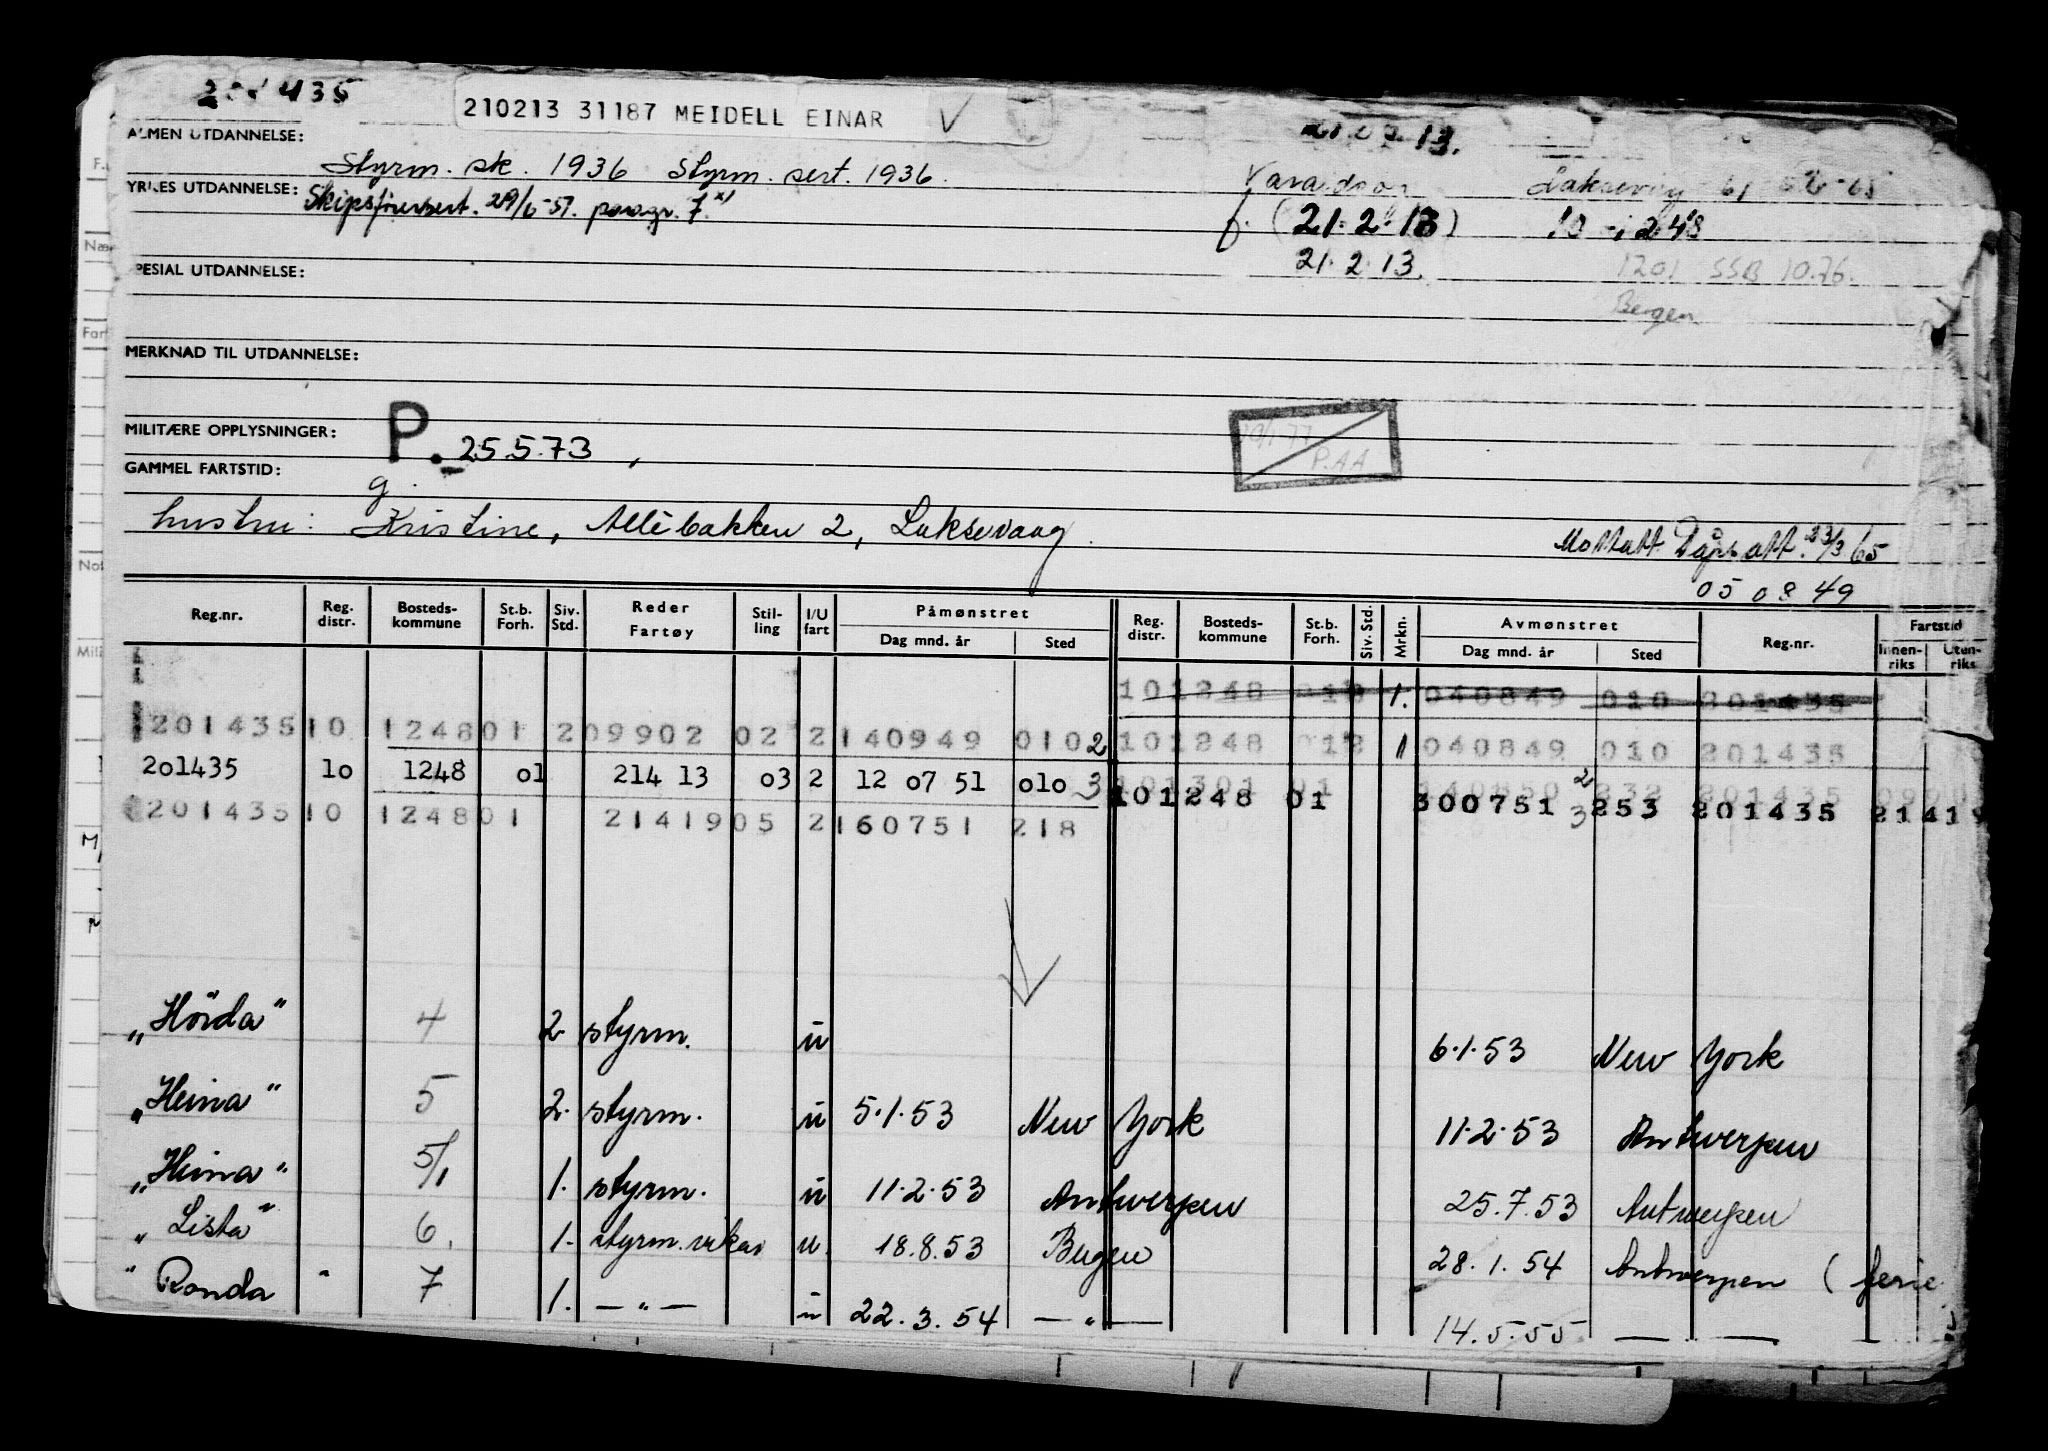 210213 31187 MEIDELL EINAR V
ALMEN UTDANNELSE:
Styrm. sk. 1936 Styrm. sert. 1936.
YRKES UTDANNELSE: Skipsförersert. 29/6-57. paragr. 7 x)
f. (21.2.13)
21.2 13.
1201 SSB 10.76.
Bergen
SPESIAL UTDANNELSE:
MERKNAD TIL UTDANNELSE:
MILITÆRE OPPLYSNINGER: P. 25.5.73
P.AA
GAMMEL FARTSTID:
g.
hustru: Kristine, Allébakken 2, Laksevaag.
Mottatt 23/3 65
05 08 49
Reg.nr. Reg. distr. Bosteds-kommune St.b. Forh. Siv. Std. Reder Fartøy Stil-ling I/U fart Påmønstret Dag mnd. år Sted Reg. distr. Bosteds-kommune St.b. Forh. Siv. Std. Mrkn. Avmønstret Dag mnd. år Sted Reg.nr. Fartstid Innen-riks Uten-riks
101248 1. 040849 010 201435
201435 10 1248 01 2 09902 02 2 140949 010 2 101248 1 040849 010 201435
201435 10 1248 01 214 13 03 2 12 07 51 010 3 101301 01 140850 2 232 201435
201435 10 1248 01 21419 05 2 160751 218 101248 01 300751 3 253 201435 21419
„Hörda" 4 2 styrm. u 6.1.53 New York
„Heina" 5 2. styrm. u 5.1.53 New York 11.2.53 Antwerpen
„Heina" 5/1 1. styrm. u 11.2.53 Antwerpen 25.7.53 Antwerpen
„Lista" 6. 1. styrm. vikar u. 18.8.53 Bergen 28.1.54 Antwerpen (ferie
"Ronda" 7 1. — " — u 22.3.54 — " — 14.5.55 — —